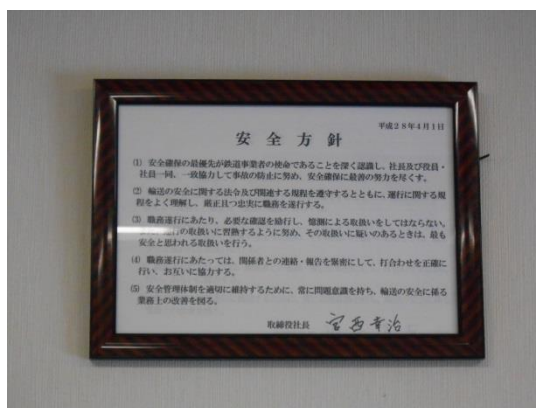 平成28年4月1日
安全方針
(1) 安全確保の最優先が鉄道事業者の使命であることを深く認識し、社長及び役員・
社員一同、一致協力して事故の防止に努め、安全確保に最善の努力を尽くす。
(2) 輸送の安全に関する法令及び関連する規程を遵守するとともに、運行に関する規
程をよく理解し、厳正且つ忠実に職務を遂行する。
(3) 職務遂行にあたり、必要な確認を励行し、憶測による取扱いをしてはならない。
の取扱いに習熟するように努め、その取扱いに疑いのあるときは、最も
安全と思われる取扱いを行う。
(4) 職務遂行にあたっては、関係者との連絡・報告を緊密にして、打合わせを正確に
行い、お互いに協力する。
(5) 安全管理体制を適切に維持するために、常に問題意識を持ち、輸送の安全に係る
業務上の改善を図る。
取締役社長 宮西幸治